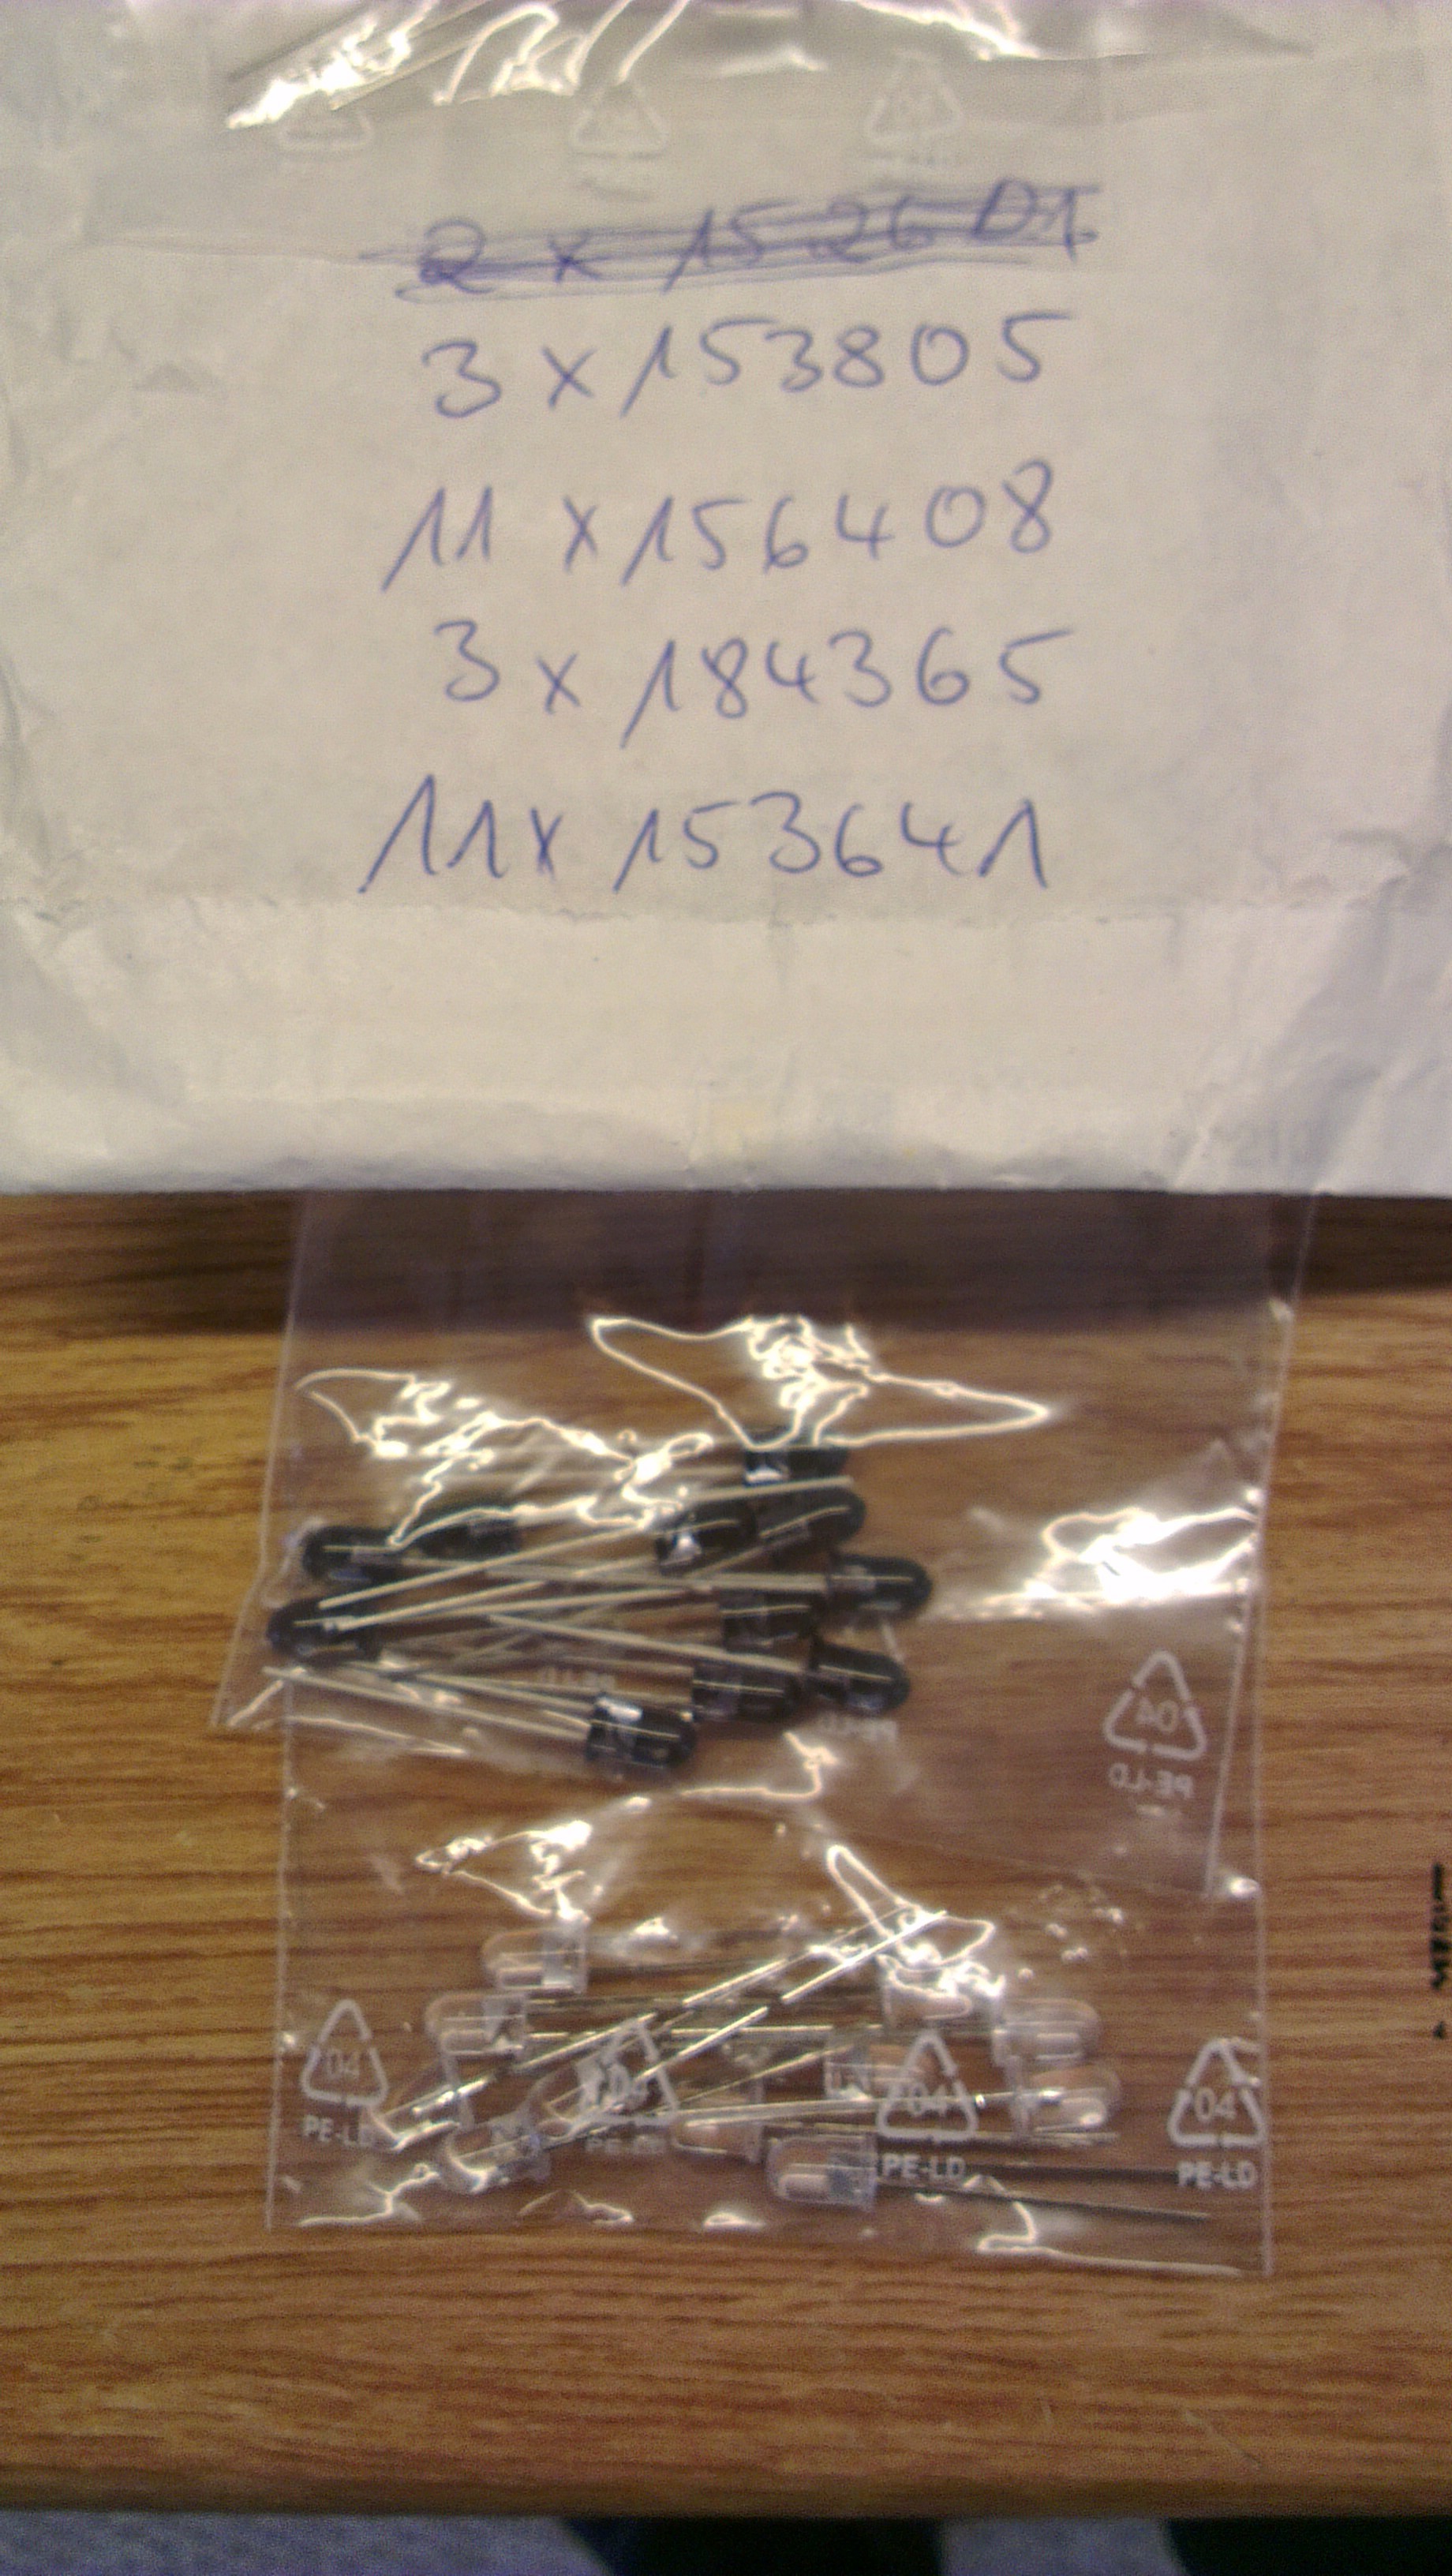 3 x 153805
11 x 156408
3 x 184365
11 x 153641
PE-LD
04
PE-LD
04
PE-LD
04
PE-LD
04
PE-LD
04
PE-LD